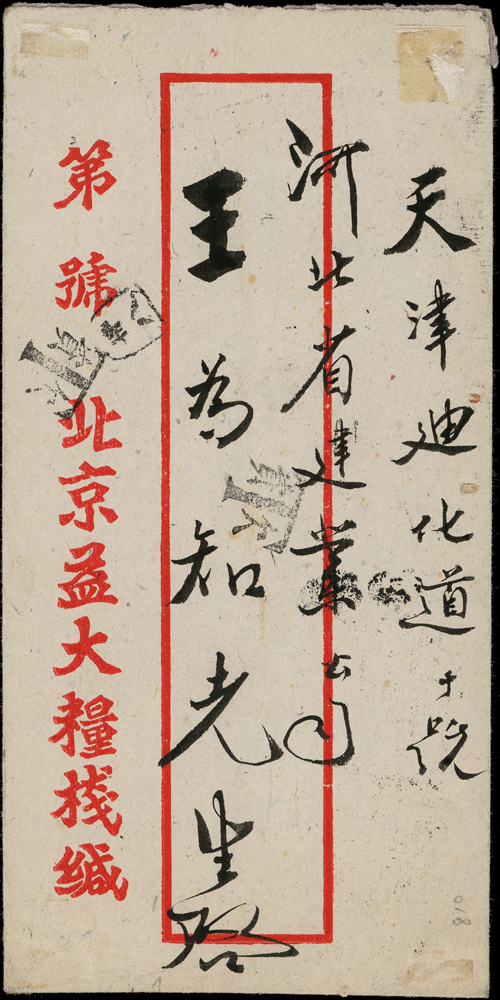 天津迪化道十號
河北省建業公司
王為知先生啓
第 號
北京益大糧棧緘
018